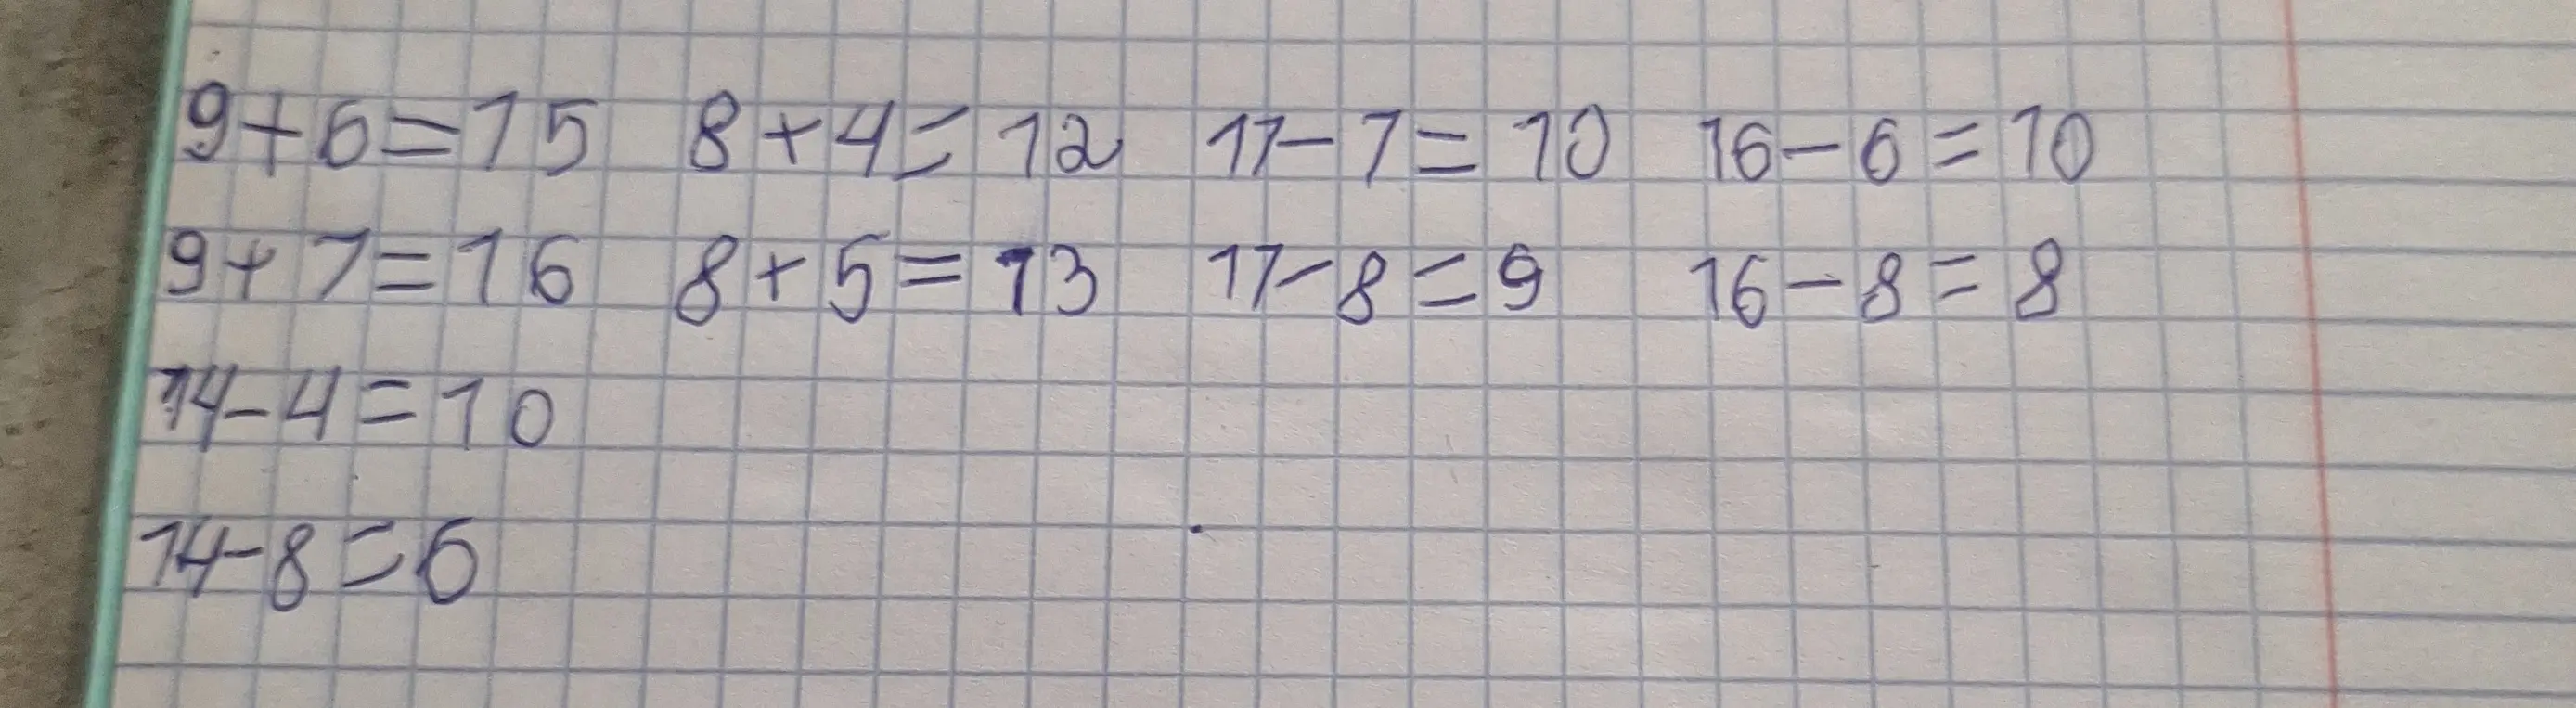 9+6=15 8+4=12 17-7=10 16-6=10
9+7=16 8+5=13 17-8=9 16-8=8
14-4=10
14-8=6